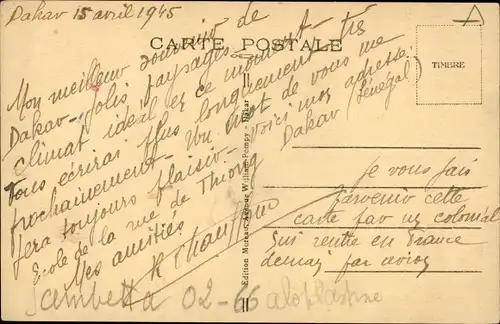 Dakar 15 avril 1945
CARTE POSTALE
TIMBRE
Mon meilleur souvenir de
Dakar - Jolis paysages -
climat idéal en ce moment - 
vous écrirai plus longuement très
prochainement - Un mot de vous me
fera toujours plaisir - voici mon adresse:
Ecole de la rue de Thiong
Dakar (Sénégal)
Mes amitiés
Edition Moreau, Avenue William-Pompy - Dakar
Je vous fais
parvenir cette
carte par un colonial
qui rentre en France
demain par avion
Gambetta 02-66